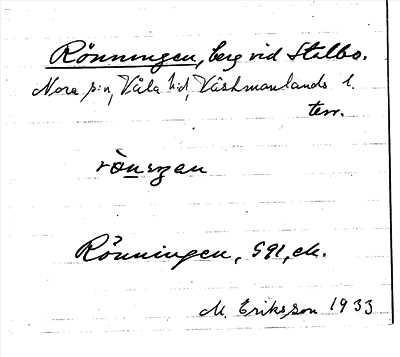 Rönningen, berg vid Stalbo.
Nora s:n, Våla hd, Västmanlands l.
terr.
Rönningen, S91, ek.
M. Eriksson 1933